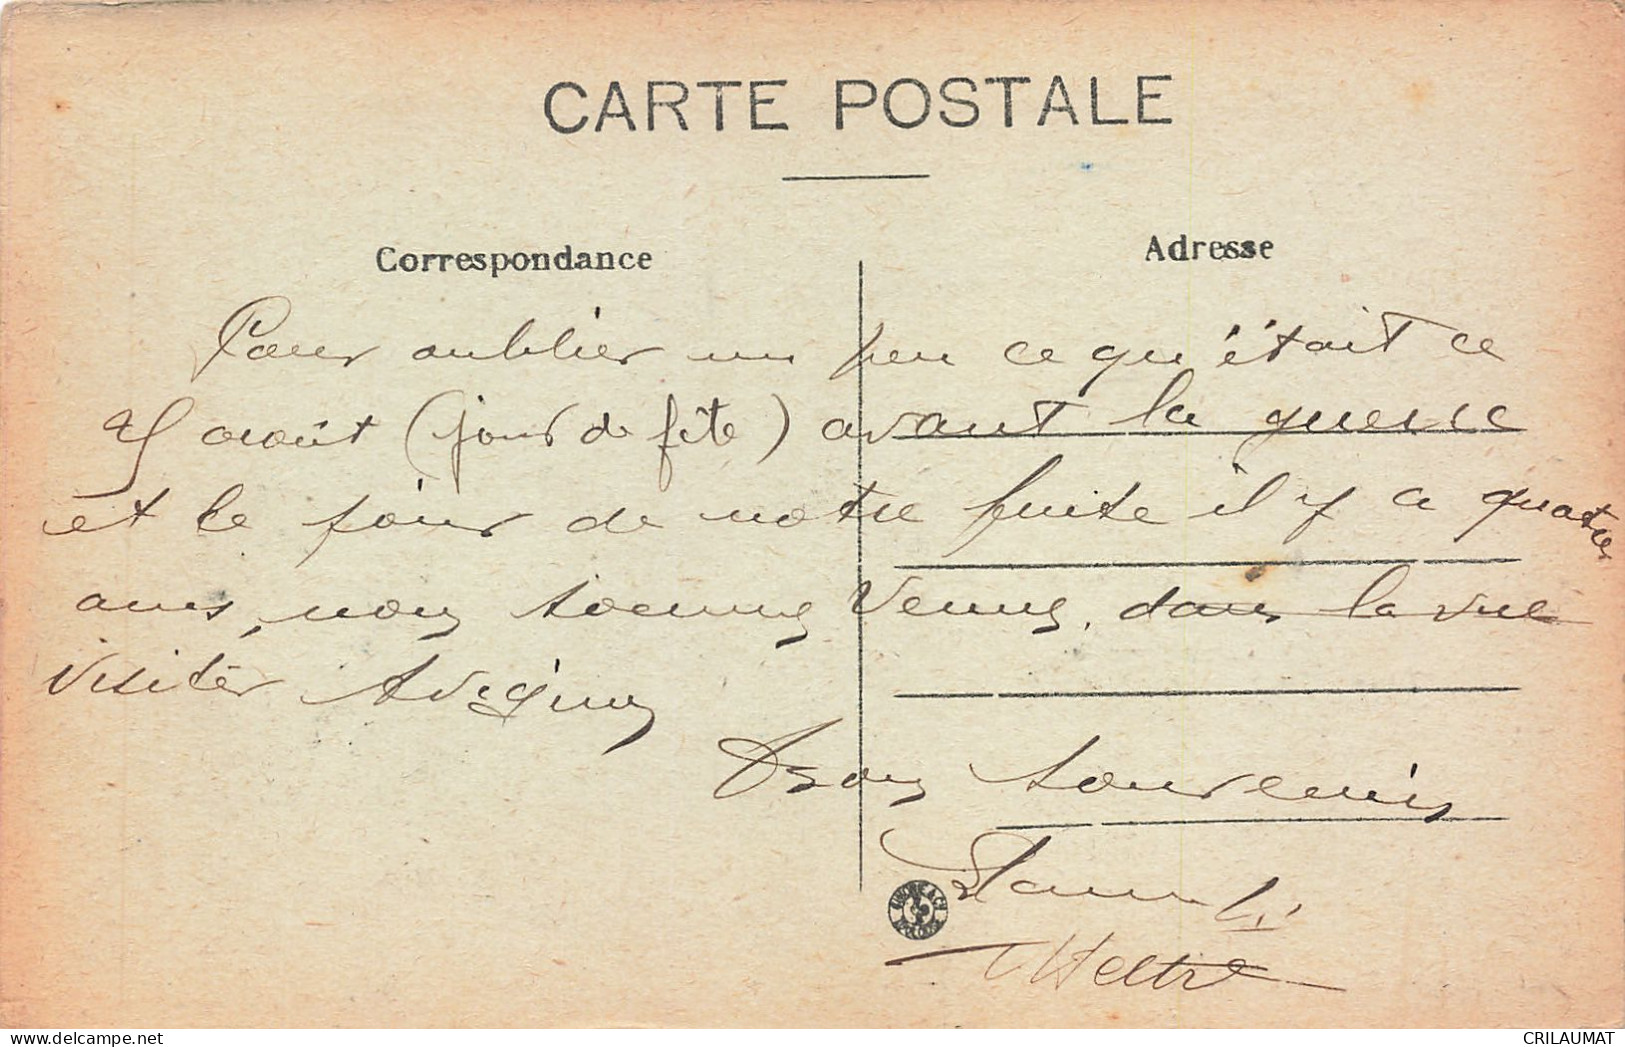 CARTE POSTALE
Correspondance
Adresse
Pour oublier un peu ce qu'était ce
août (jour de fête) avant la guerre
et le jour de notre fuite il y a quatre
ans, nous sommes venus, dans la vue
visiter Avignon
Bons souvenirs
www.delcampe.net
CRILAUMAT